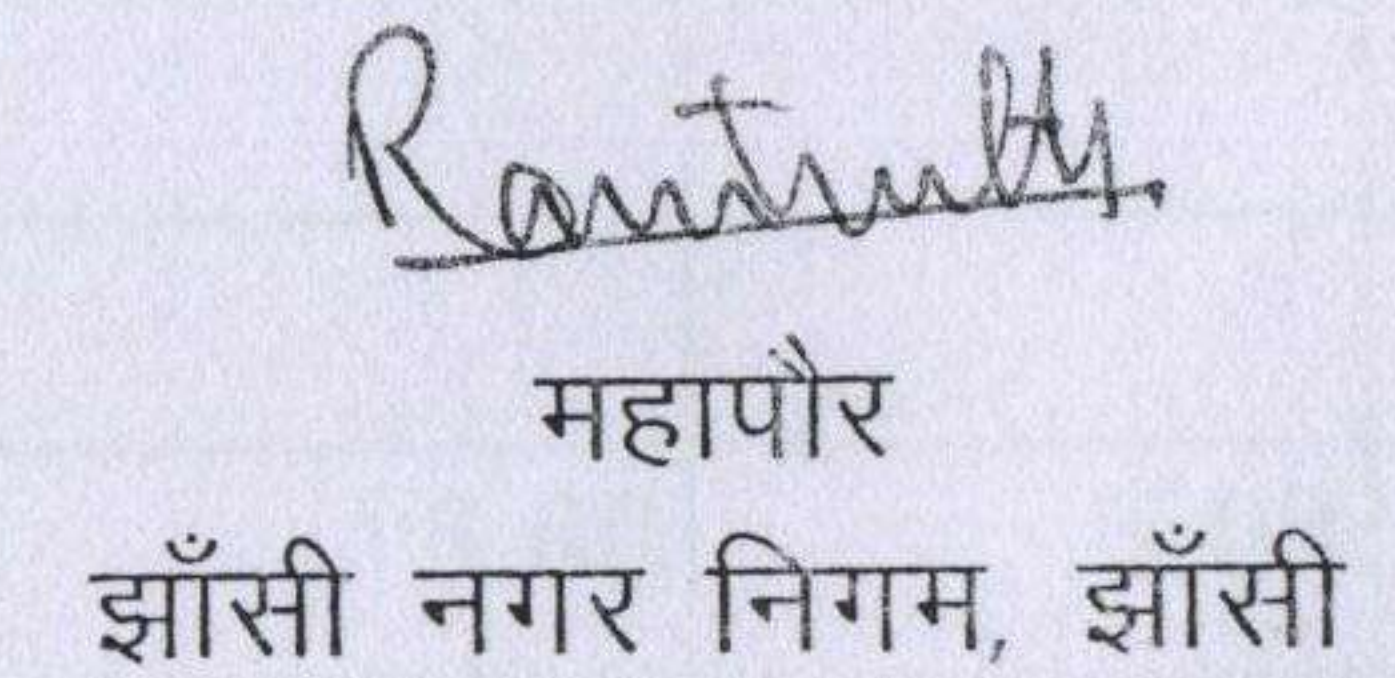 महापौर
झाँसी नगर निगम, झाँसी